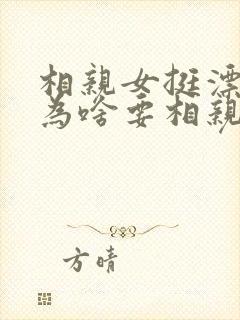 相親女挺漂
為啥要相親
方晴